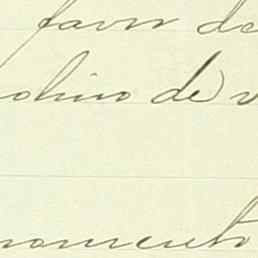 favor de
olino de v
momento